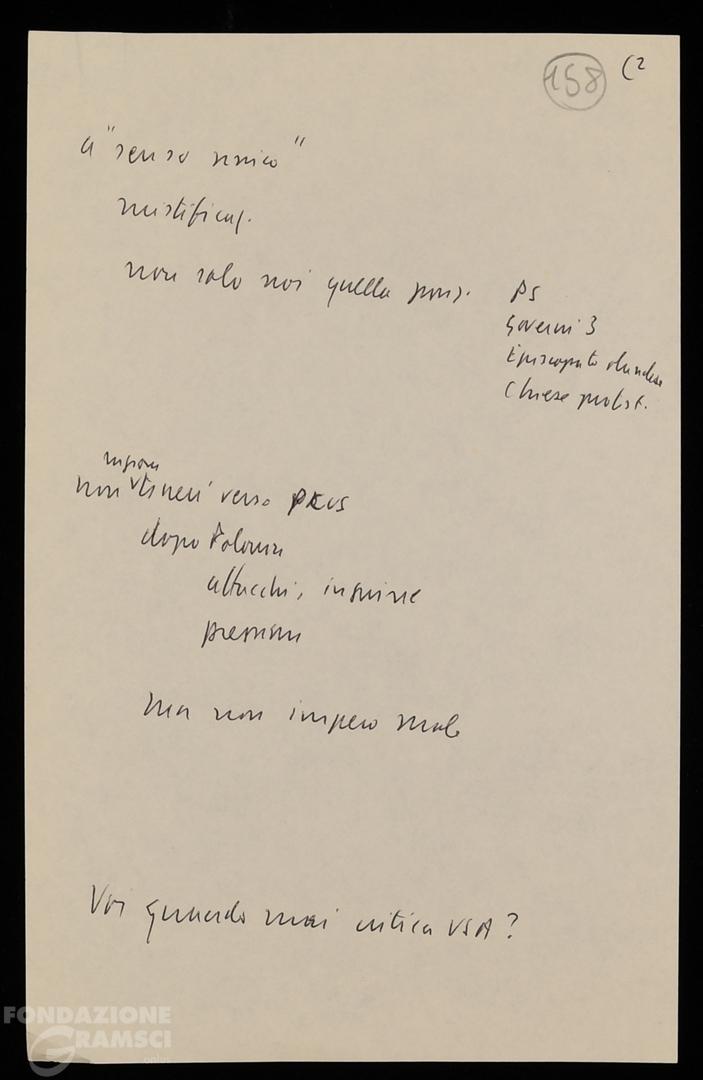 158 C2
a "senso unico"
mistificaz.
non solo noi quella posiz.
PS
Governi 3
Episcopato olandese
Chiese protest.
non teneri verso PCUS
dopo Polonia
attacchi, ingiurie
pressioni
ma non impero male
Voi quando mai critica USA?
FONDAZIONE
GRAMSCI
onlus